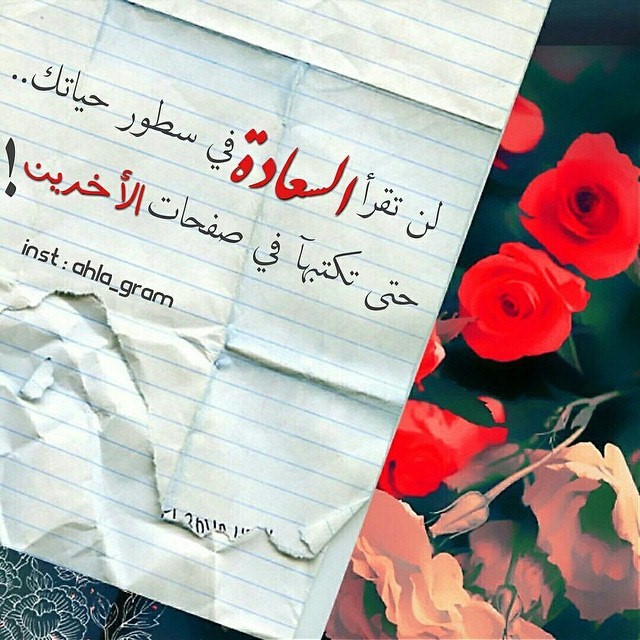 لن تقرأ السعادة في سطور حياتك..
حتى تكتبهآ في صفحات الأخرين!
inst : ahla_gram